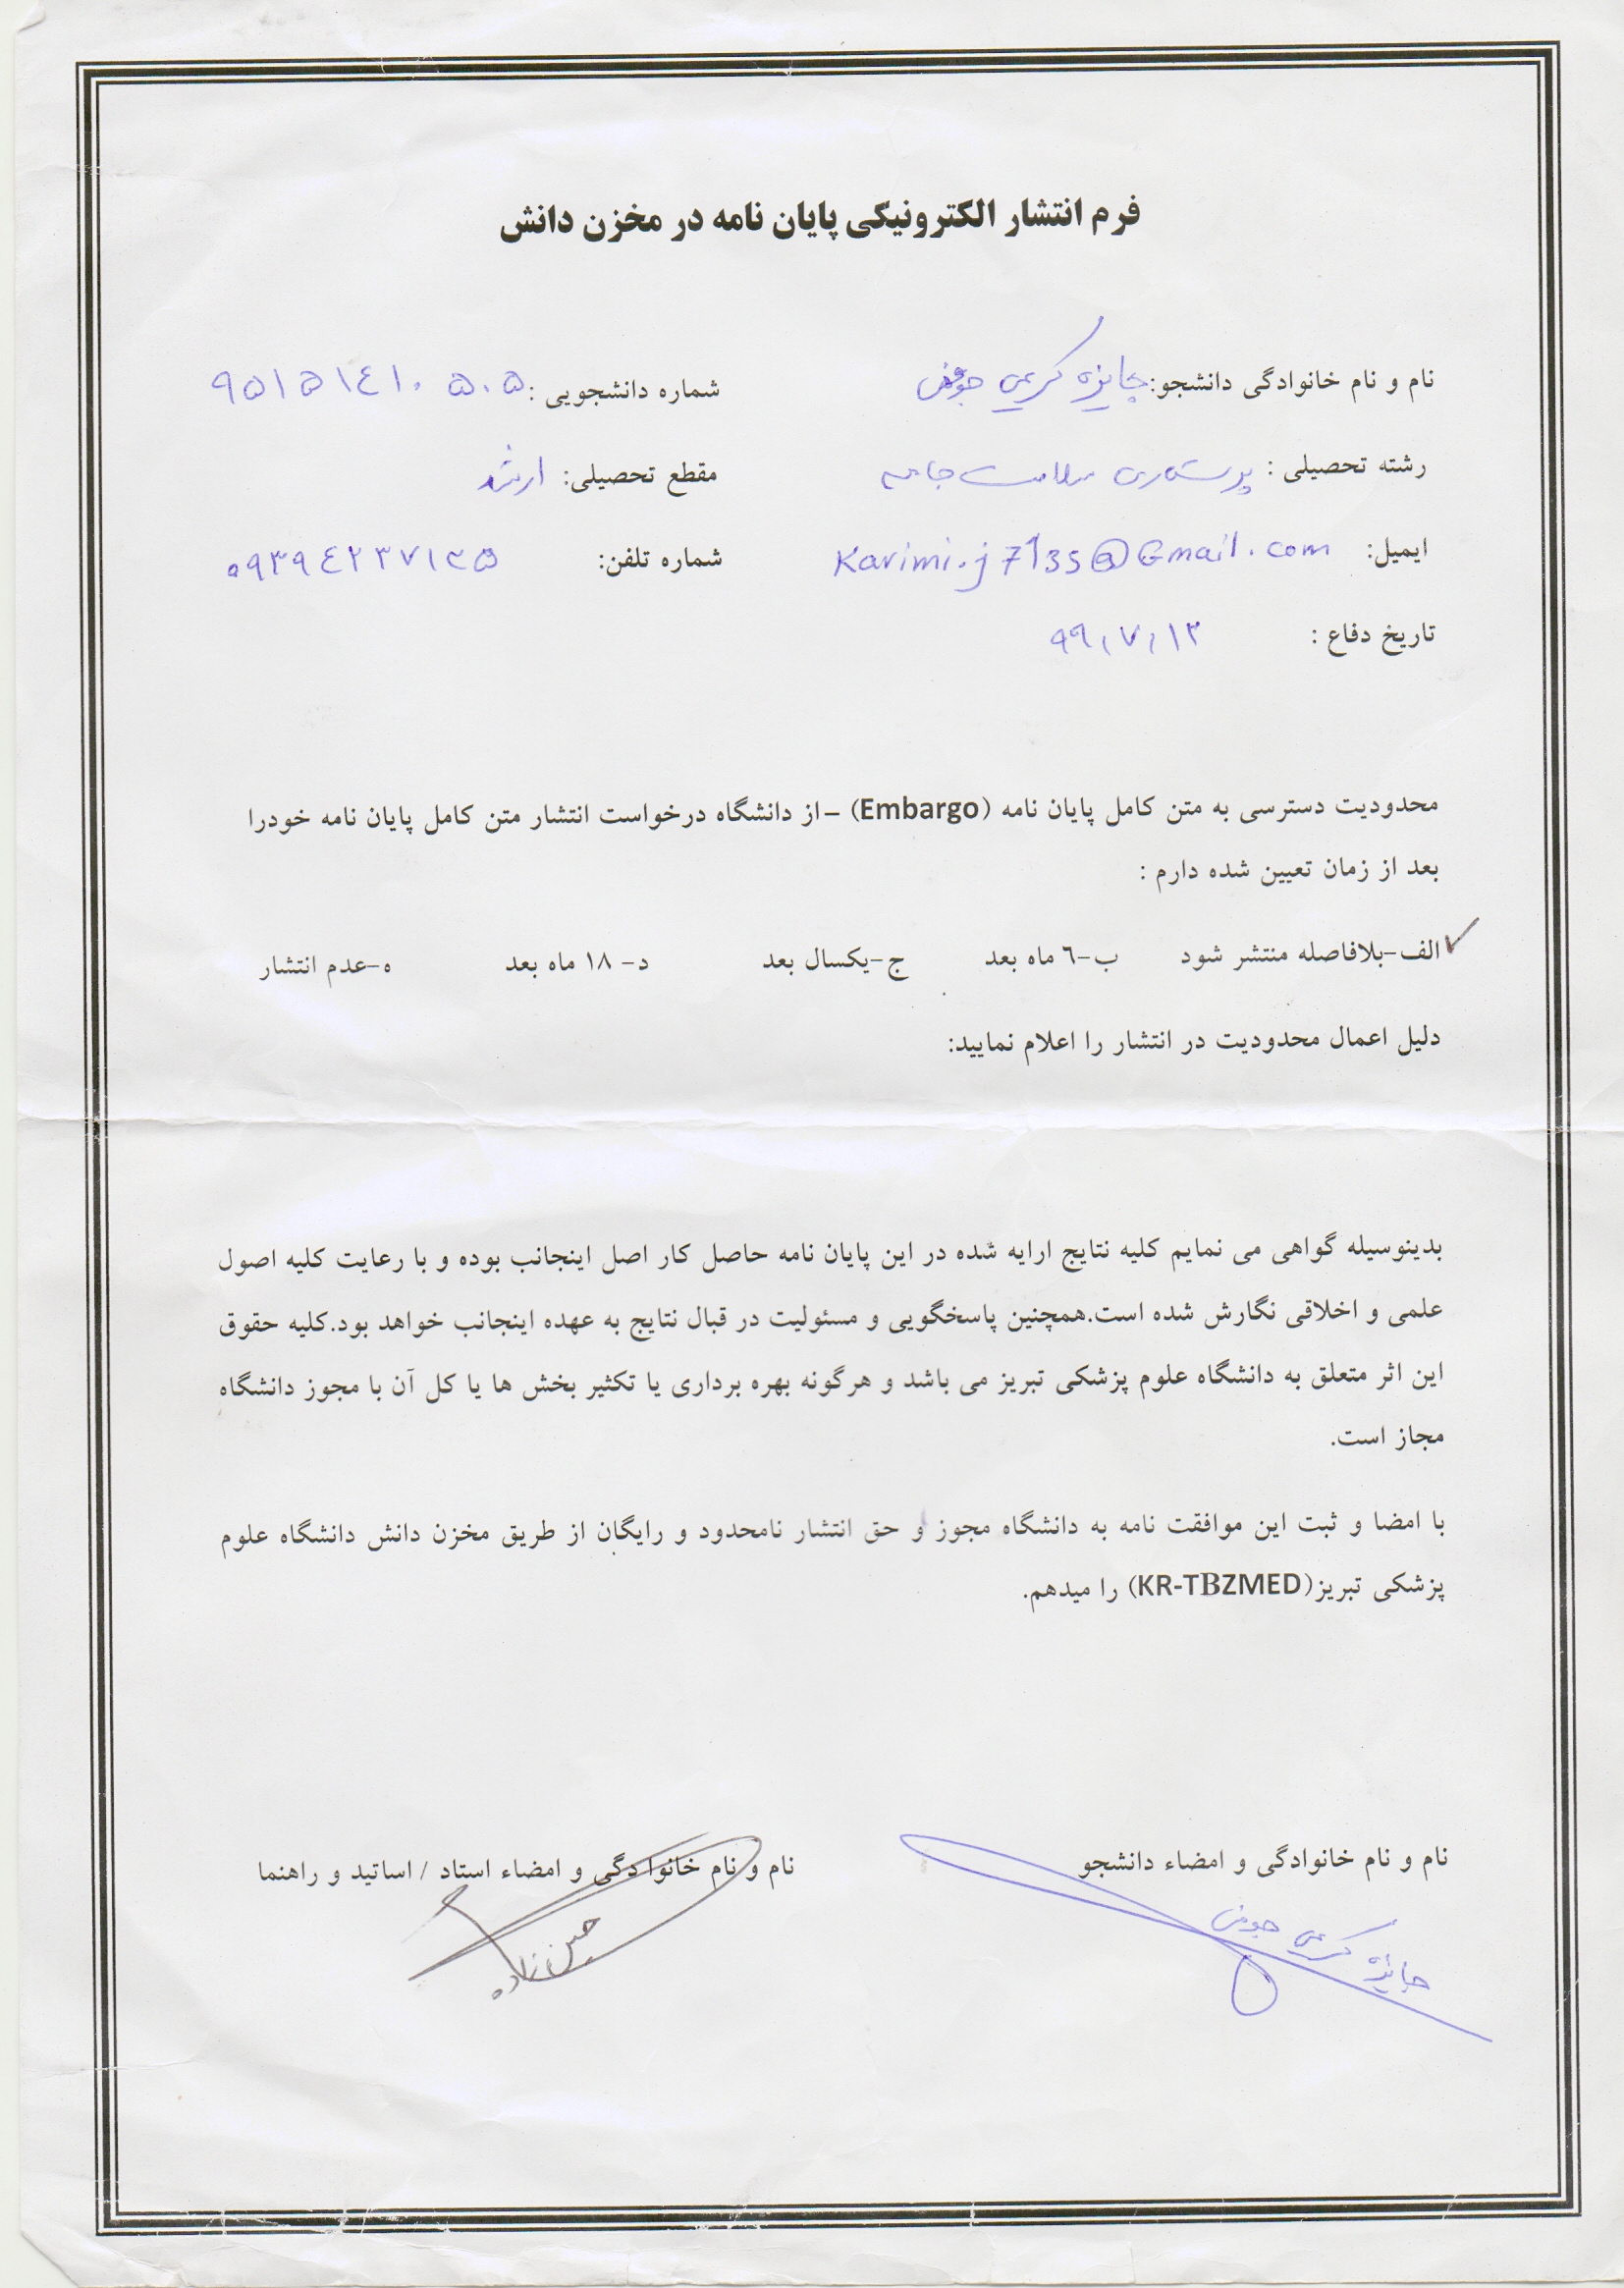 فرم انتشار الکترونیکی پایان نامه در مخزن دانش
نام و نام خانوادگی دانشجو: جایزه کریمی شماره دانشجویی: ۹۵۱۵۱٤۱۰۵۰۵
رشته تحصیلی : پرستاری سلامت جامعه مقطع تحصیلی: ارشد
ایمیل: Karimi.j7135@Gmail.com شماره تلفن: ۰۹۳۹٤۲۳۷۱۳۵
تاریخ دفاع : ۹۹/۷/۱۳
محدودیت دسترسی به متن کامل پایان نامه (Embargo) –از دانشگاه درخواست انتشار متن کامل پایان نامه خودرا
بعد از زمان تعیین شده دارم :
✓ الف-بلافاصله منتشر شود ب-٦ ماه بعد ج-یکسال بعد د- ۱۸ ماه بعد ه-عدم انتشار
دلیل اعمال محدودیت در انتشار را اعلام نمایید:
بدینوسیله گواهی می نمایم کلیه نتایج ارایه شده در این پایان نامه حاصل کار اصل اینجانب بوده و با رعایت کلیه اصول
علمی و اخلاقی نگارش شده است.همچنین پاسخگویی و مسئولیت در قبال نتایج به عهده اینجانب خواهد بود.کلیه حقوق
این اثر متعلق به دانشگاه علوم پزشکی تبریز می باشد و هرگونه بهره برداری یا تکثیر بخش ها یا کل آن با مجوز دانشگاه
مجاز است.
با امضا و ثبت این موافقت نامه به دانشگاه مجوز و حق انتشار نامحدود و رایگان از طریق مخزن دانش دانشگاه علوم
پزشکی تبریز(KR-TBZMED) را میدهم.
نام و نام خانوادگی و امضاء دانشجو نام و نام خانوادگی و امضاء استاد / اساتید و راهنما
جایزه کریمی حسین زاده